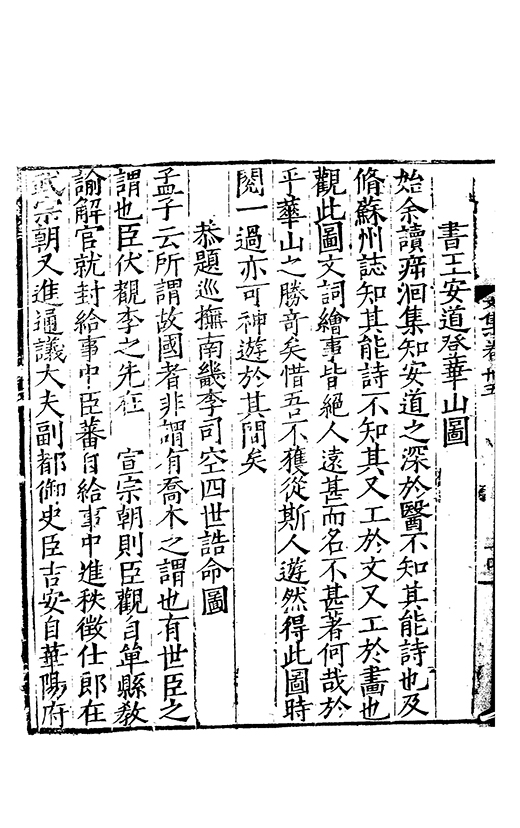 文集卷卅五
書王安道登華山圖
始余讀痟洄集知安道之深於醫不知其能詩也及
脩蘇州誌知其能詩不知其又工於文又工於畵也
觀此圖文詞繪事皆絕人遠甚而名不甚著何哉於
乎華山之勝奇矣惜吾不獲從斯人遊然得此圖時
閱一過亦可神遊於其間矣
恭題巡撫南畿李司空四世誥命圖
孟子云所謂故國者非謂有喬木之謂也有世臣之
謂也臣伏觀李之先在 宣宗朝則臣觀自單縣敎
諭解官就封給事中臣蕃自給事中進秩徵仕郎在
武宗朝又進通議大夫副都御史臣吉安自華陽府